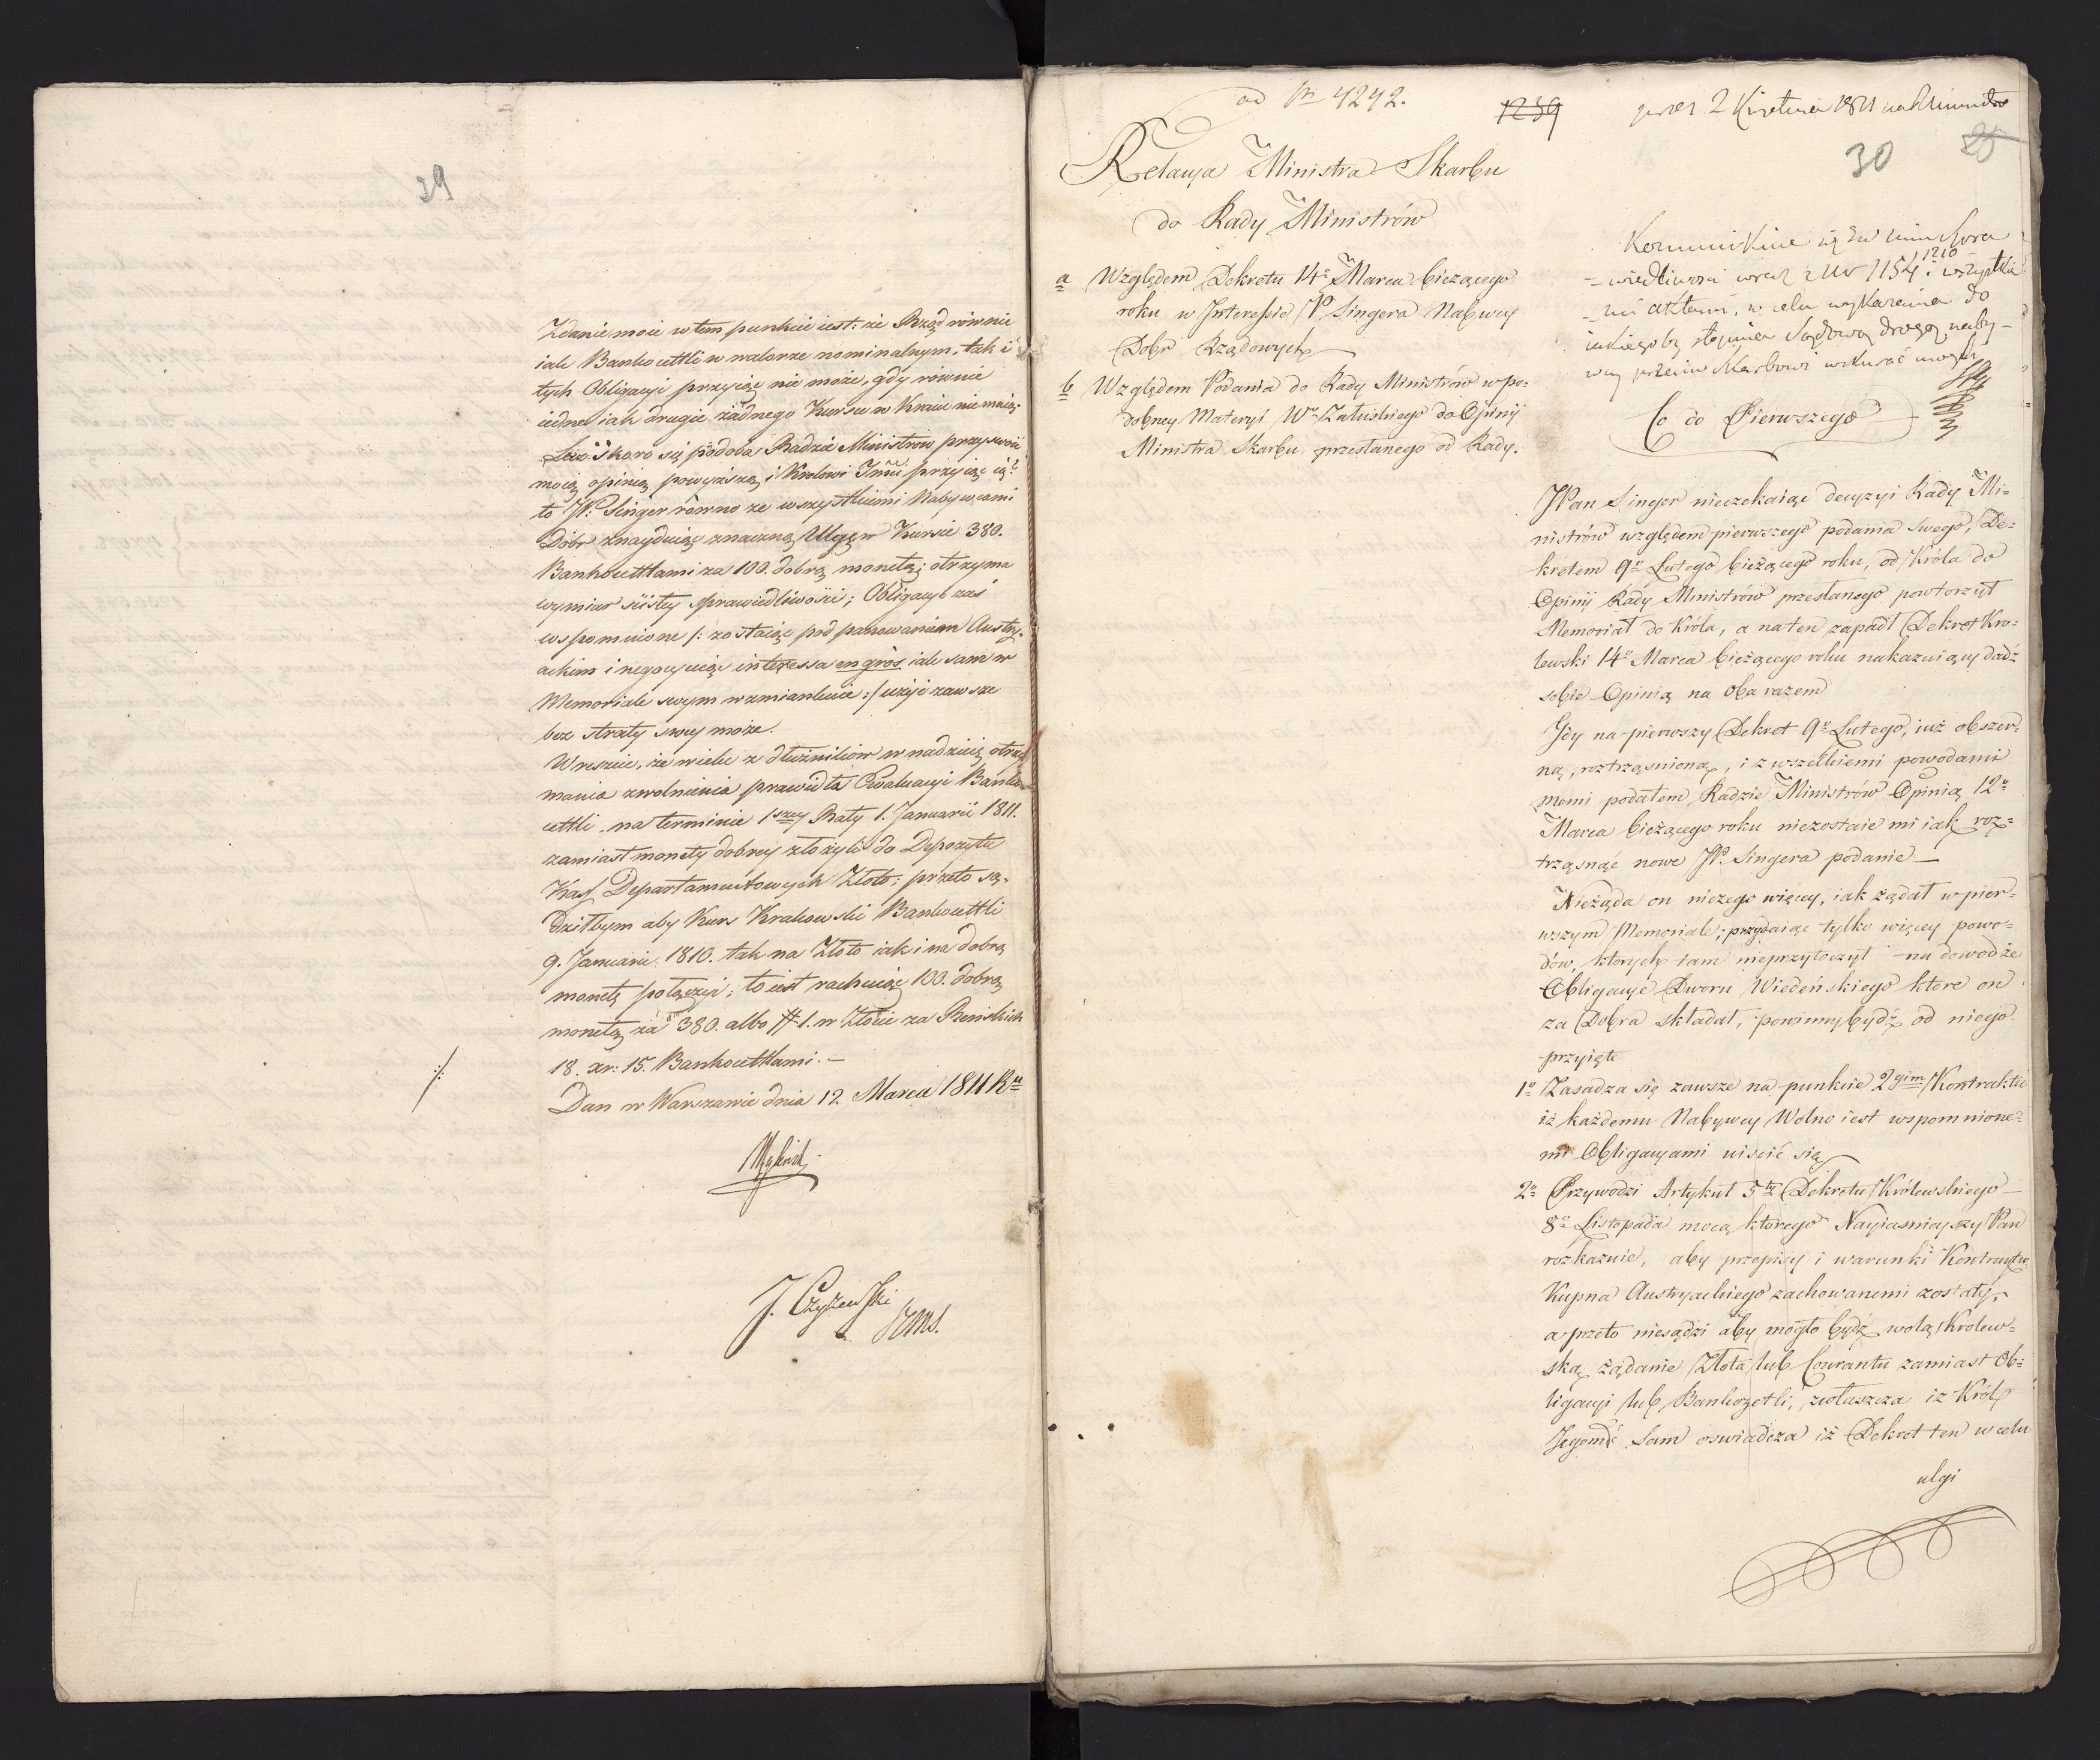 29
Zdanie moie w tem punkcie iest: że Rząd równie
iak Bankocettli w walorze nominalnym, tak i
tych Obligacyi przyiąć nie może, gdy równie
iedne iak drugie żadnego Kursu w Kraiu nie maią.
Lecz skoro się podoba Radzie Ministrów przyswoić
moią opinią powyższą, i Królowi Jmci przyiąć ią:
to JP. Singer równo ze wszystkiemi Nabywcami
Dóbr znayduiąc znaczną Ulgę w Kursie 380.
Bankocettlami za 100. dobrą monetą; otrzyma
wymiar ścisłey sprawiedliwości; Obligacye zaś
wspomnione /: zostaiąc pod panowaniem Austry-
ackim i negocyuiąc interessa en gros iak sam w
Memoriale swym wzmiankuie :/ użyć zawsze
bez straty swey może.
Wreszcie, że wielu z dłużników w nadzieię otrzy
mania zwolnienia prawidła Ewaluacyi Banko
cettli, na terminie 1szey Raty 1. Januarii 1811.
zamiast monety dobrey złożyli do Depozytu
Kass Departamentowych Złoto; przeto są-
dziłbym aby Kurs Krakowski Bankocettli
9. Januarii 1810. tak na Złoto iak i na dobrą
monetę połączyć; to iest rachuiąc 100. dobrą
monetą za 380. albo # 1. w Złocie za Reńskich
18. xr: 15. Bankocettlami. –
Dan w Warszawie dnia 12 Marca 1811 Ru
J. Czyżewski
ad Nr 4242.
1239
30
25
Relacya Ministra Skarbu
do Rady Ministrów
a Względem Dekretu 14o Marca bieżącego
roku w Interessie JP. Singera Nabywcy
Dobr Rządowych
b Względem Podania do Rady Ministrów w po-
dobney Materyi Wo Załuskiego do Opinij
Ministra Skarbu przesłanego od Rady.
2 Kwietnia 1811
Kommunikuie się
wiedliwości wraz z No 1154 i 1210 wszystkie
mi aktami, w celu wykazania do
iakiego by stopnia Sądową drogą naby-
wcy przeciw Skarbowi wskurać mogli
Co do Pierwszego
JPan Singer nieczekaiąc decyzyi Rady Mi-
nistrów względem pierwszego podania swego, De-
kretem 9o Lutego bieżącego roku, od Króla do
Opinij Rady Ministrów przesłanego powtorzył
Memoriał do Króla, a na ten zapadł Dekret Kro-
lewski 14o Marca bieżącego roku nakazuiący dadź
sobie Opinią na oba razem
Gdy na pierwszy Dekret 9o Lutego, iuż obszer-
ną, roztrząsnioną, i z wszelkiemi powodami
memi podałem Radzie Ministrów Opinią 12o
Marca bieżącego roku niezostaie mi iak roz-
trząsnąć nowe JP. Singera podanie —
Nieżąda on niczego więcey, iak żądał w pier-
wszym Memoriale; przydaiąc tylko więcey powo-
dów, których tam nieprzytoczył – na dowod że
Obligacye Dworu Wiedeńskiego które on
za Dobra składał, powinny bydź od niego
przyięte
1o Zasadza się zawsze na punkcie 2gim Kontraktu
iż każdemu Nabywcy Wolno iest wspomnione-
mi Obligacyami uiścić się
2o Przywodzi Artykuł 5ty Dekretu Królewskiego —
8o Listopada mocą którego Nayiasnieyszy Pan
rozkazuie, aby przepisy i warunki Kontraktu
Kupna Austryackiego zachowanemi zostały,
a przeto niesądzi aby mogło bydź wolą Krolew-
ską żądanie Złota lub Courantu zamiast Ob-
ligacyi lub Bankozetli, zwłaszcza iż Król
Jegomść Sam oswiadcza iż Dekret ten w celu
ulgi